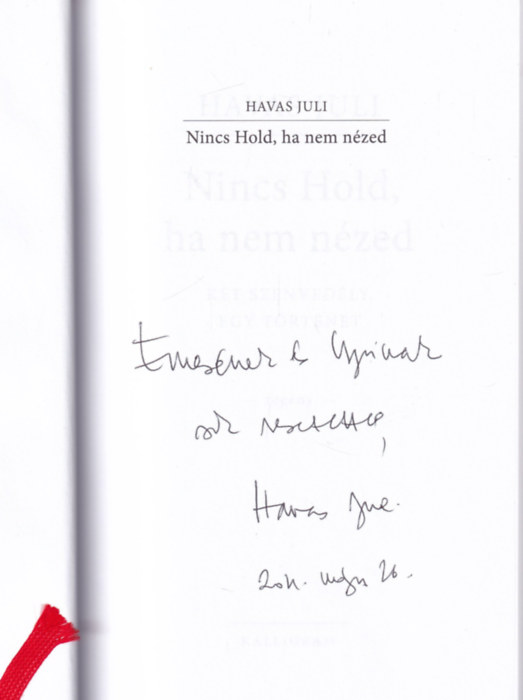 HAVAS JULI
Nincs Hold, ha nem nézed
Emesének és
sok szeretettel,
Havas Juli.
26.